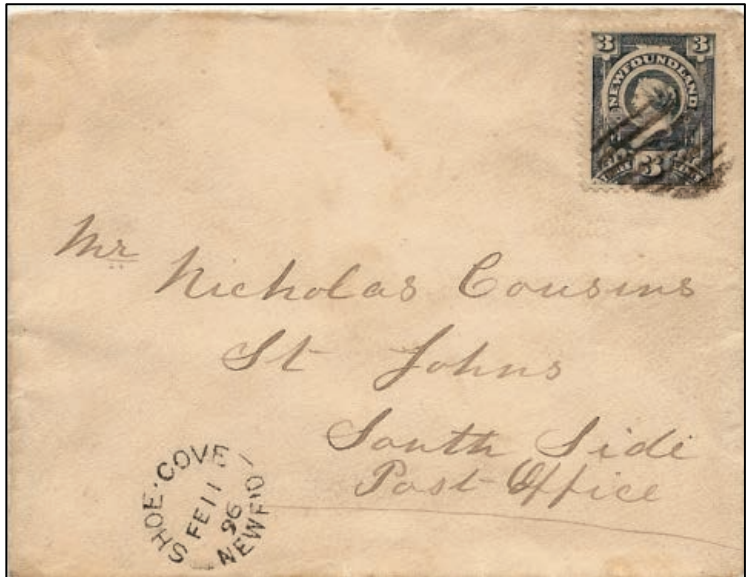 3 3
NEWFOUNDLAND
3
Mr Nicholas Cousins
St Johns
South Side
Post Office
SHOE·COVE
FE 11
96
NEWF'D